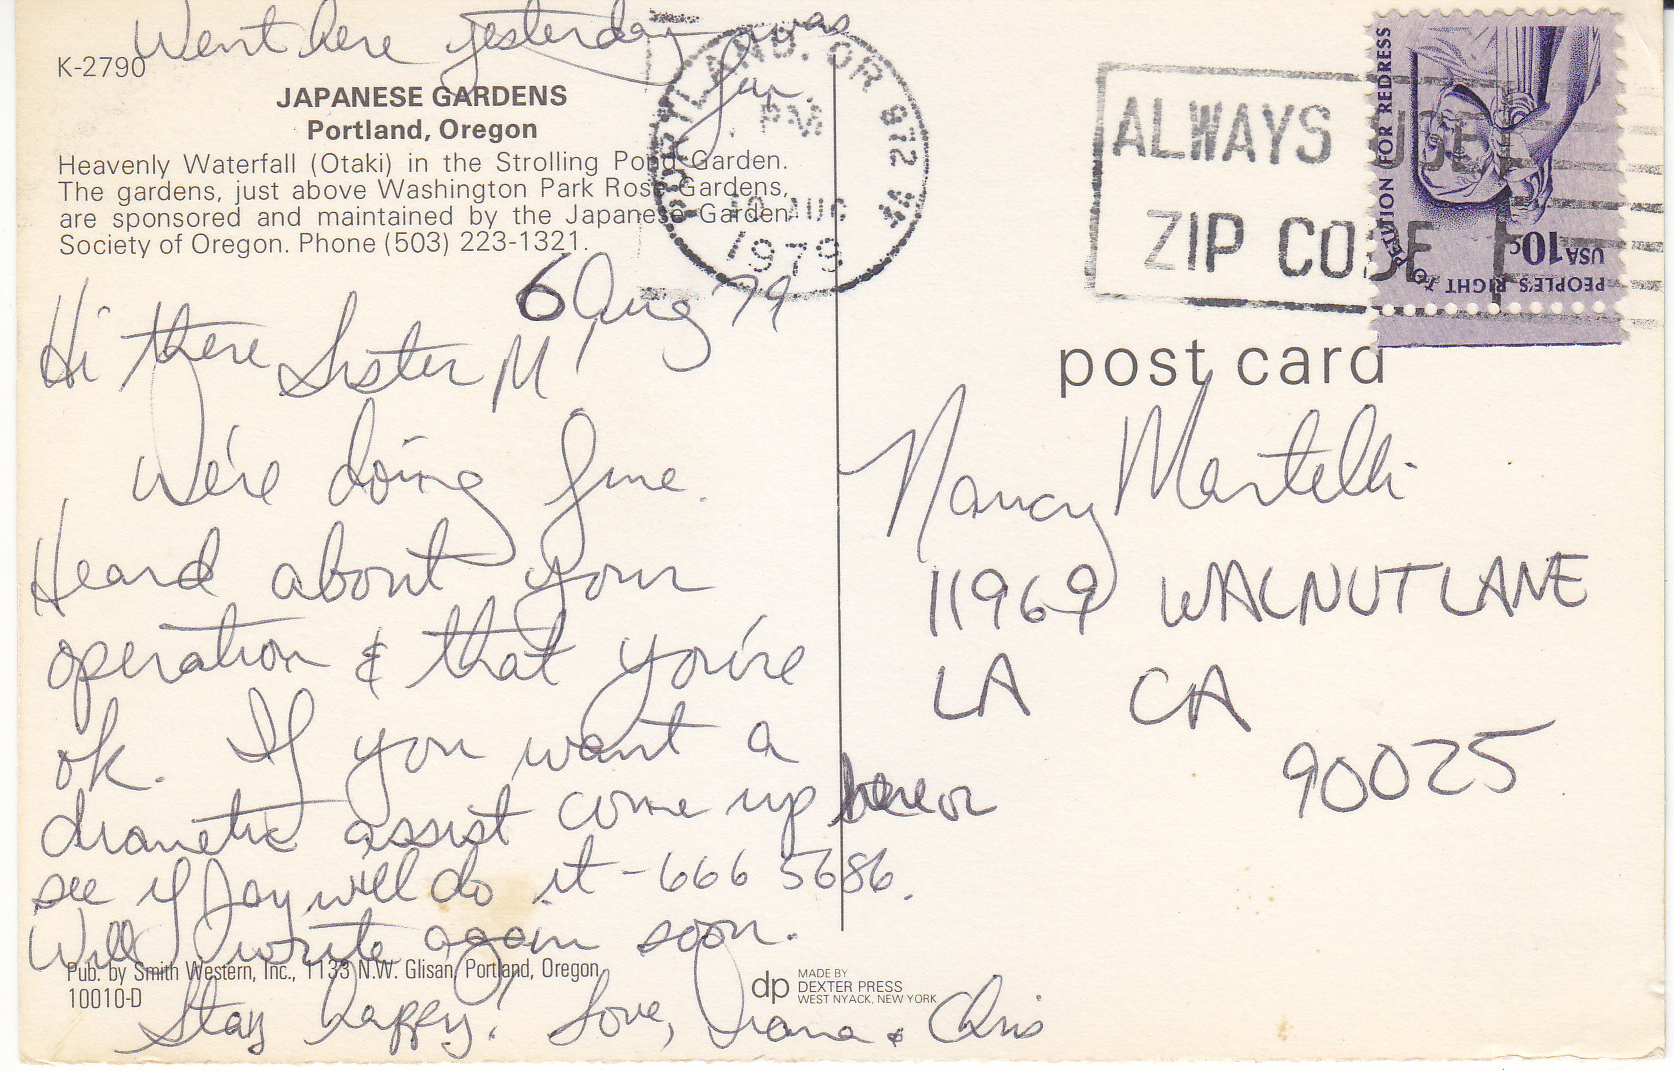 Went here yesterday was
fun.
K-2790
JAPANESE GARDENS
Portland, Oregon
Heavenly Waterfall (Otaki) in the Strolling Pond Garden.
The gardens, just above Washington Park Rose Gardens,
are sponsored and maintained by the Japanese Garden
Society of Oregon. Phone (503) 223-1321.
6 Aug 79
Hi there Sister M
We're doing fine.
Heard about your
operation & that you're
ok. If you want a
dianetic assist come up here or
see if Jay will do it - 666 5686.
Will write again soon.
Stay happy! Love, Diana & Chris
Pub. by Smith Western, Inc., 1133 N.W. Glisan, Portland, Oregon
10010-D
dp MADE BY
DEXTER PRESS
WEST NYACK, NEW YORK
PORTLAND, OR 972
PM
AUG
1979
ALWAYS USE
ZIP CODE
PEOPLE'S RIGHT TO PETITION FOR REDRESS
USA 10c
post card
Nancy Martelli
11969 WALNUT LANE
LA CA
90025